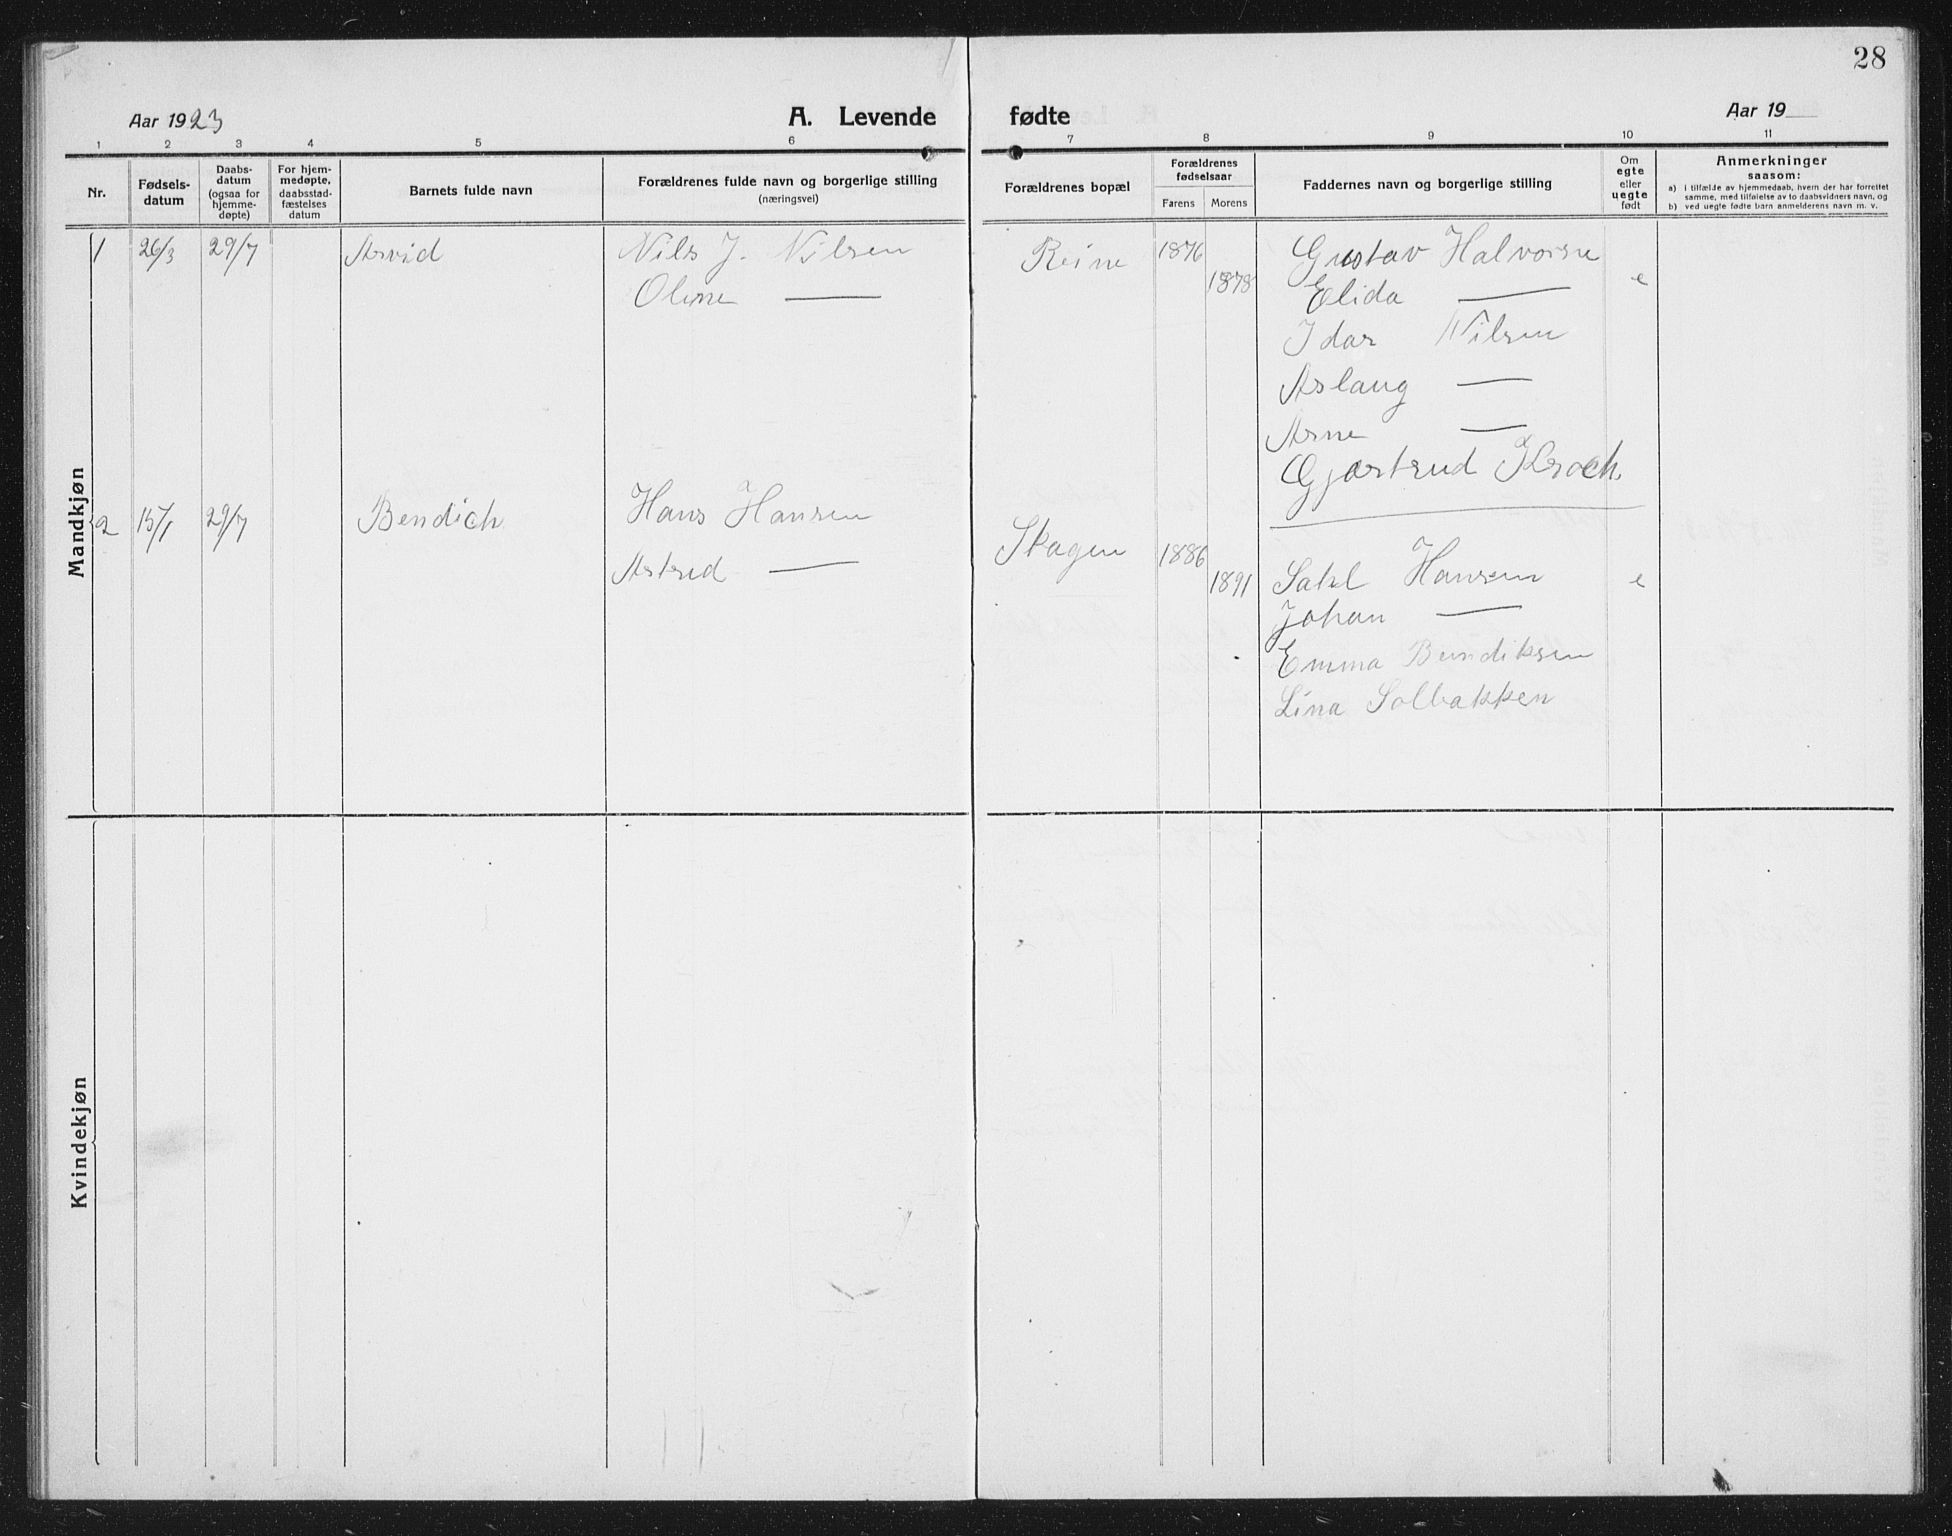 28
Aar 1923
A. Levende fødte
Aar 19
1 2 3 4 5 6 7 8 9 10 11
Nr.
Fødsels-
datum
Daabs-
datum
(ogsaa for
hjemme-
døpte)
For hjem-
medøpte,
daabsstad-
fæstelses
datum
Barnets fulde navn
Forældrenes fulde navn og borgerlige stilling
(næringsvei)
Forældrenes bopæl
Forældrenes
fødselsaar
Farens Morens
Faddernes navn og borgerlige stilling
Om
egte
eller
uegte
født
Anmerkninger
saasom:
a) i tilfælde av hjemmedaab, hvem der har forrettet
samme, med tilføielse av to daabsvidners navn, og
b) ved uegte fødte barn anmelderens navn m. v.
Mandkjøn
1 26/3 29/7 Arvid Nils J. Nilsen Reine 1876 Gustav Halvorsne
Oline — 1878 Elida — e
Idar Nilsen
Aslaug —
Arne —
Gjærtrud Kroch
2 15/1 29/7 Bendich Hans Hansen Skagen 1886
Astrid — 1891 Hansen e
Johan —
Emma Bendiksen
Lina Solbakken
Kvindekjøn